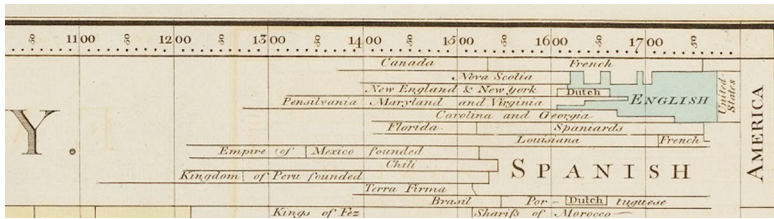 50 1100 50 1200 50 1300 50 1400 50 1500 50 1600 50 1700 50
Canada French
Nova Scotia
New England & New York Dutch
Pensilvania Maryland and Virginia ENGLISH
United States
Carolina and Georgia
Florida Spaniards
Louisiana French
Y.
Empire of Mexico founded
Chili
SPANISH
Kingdom of Peru founded
Terra Firma
Brasil Por- Dutch tuguese
Kings of Fez Sharifs of Morocco
AMERICA